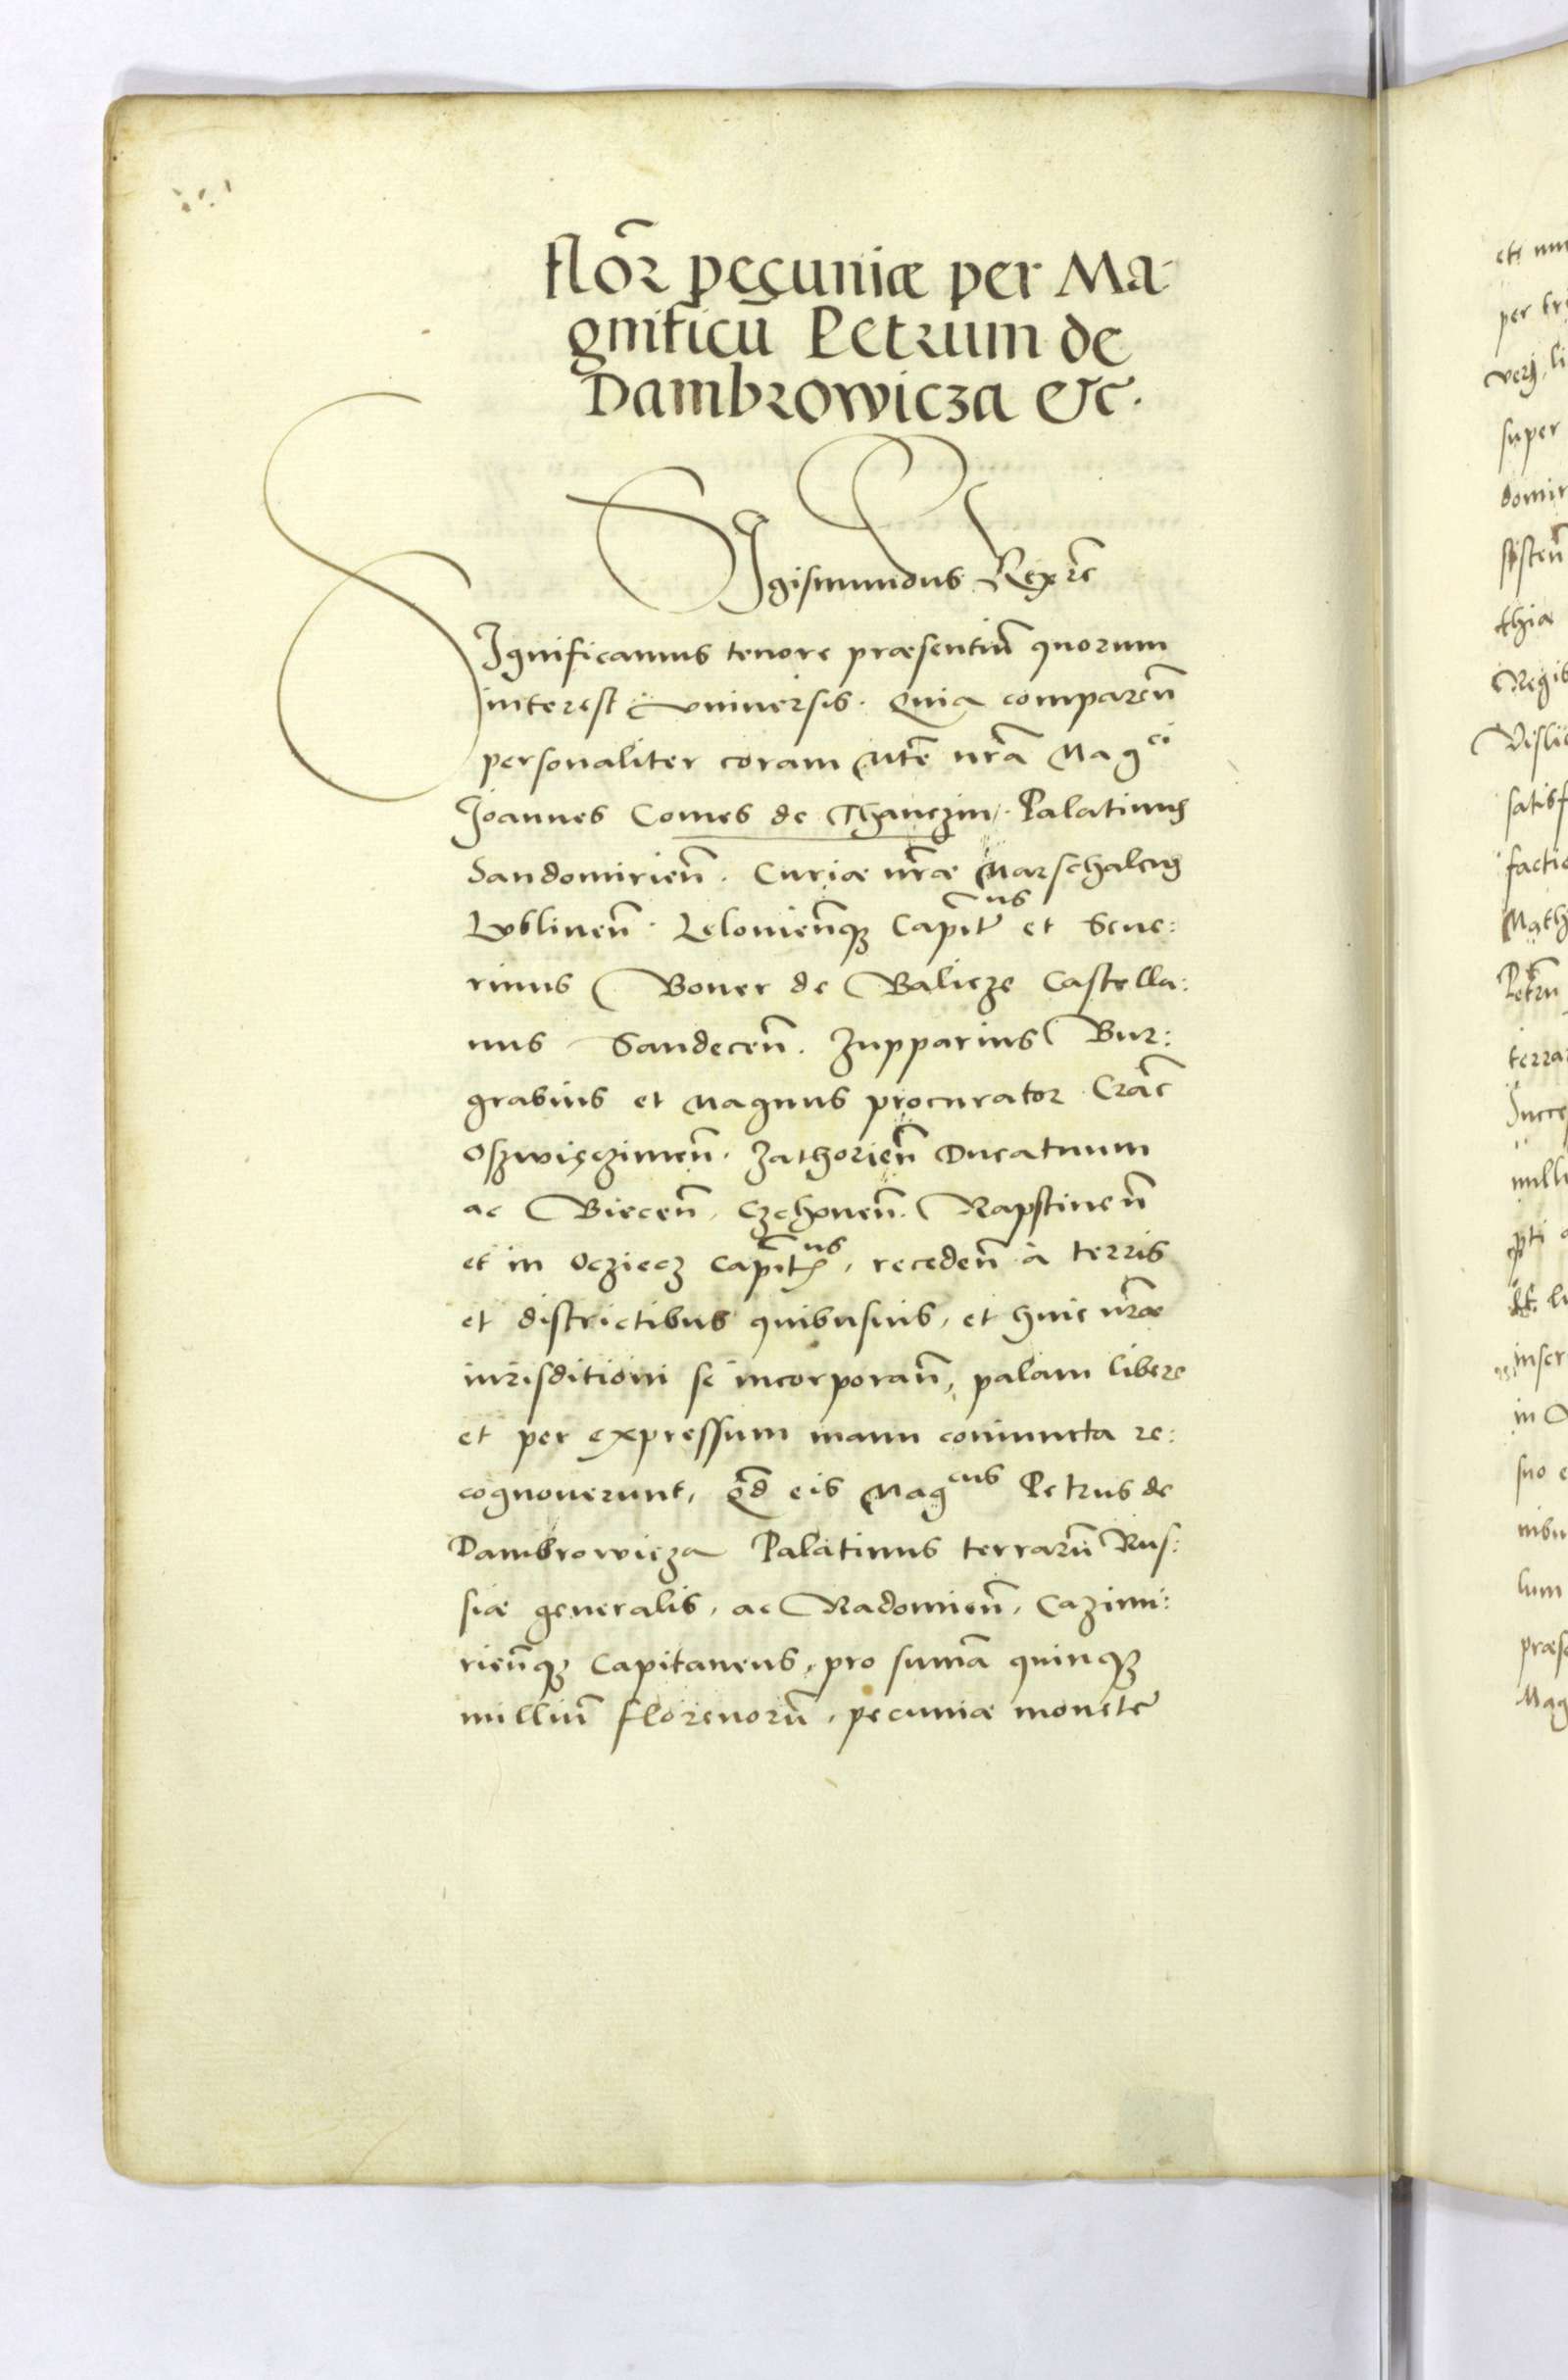 flor̃ pęcuniæ per Ma-
gnificũ Petrum de
Dambrowicza etc.
Sigismundus Rex etc̃
Significamus tenore præsentiũ quorum
interest vniuersis. Quia comparen̄
personaliter coram Mte nr̃a Magci
Joannes Comes de Thanczin. Palatinus
Sandomirien̄. Curiæ nr̃æ Marschalcus
Lublinen̄. Lelouien̄q3 Capitus et Seue:
rinus Boner de Balicze Castella:
nus Sandecen̄. Zupparius Bur:
grabius et Magnus procurator Crac̃
Oszwięczimen̄. Zathorien̄ Ducatuum
ac Biecen̄. Czchouen̄. Rapstinen̄
et in Ocziecz Capitus, receden̄ à terris
et districtibus quibusuis, et huic nr̃æ
iurisditioni se incorporan̄, palam libere
et per expressum manu coniuncta re:
cognouerunt, Qd̃ eis Magcus Petrus de
Dambrowicza Palatinus terrarũ Rus:
siæ generalis, ac Radomien̄, Cazimi:
rien̄q3 Capitaneus, pro sum̃a quinq3
milliũ florenorũ, pecuniæ monetæ
et
per
super
thia
factio
in
suo
lum